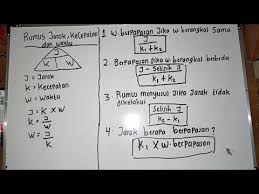 Rumus Jarak, Kecepatan
dan waktu
J
K W
J = Jarak
K = Kecepatan
W = Waktu
J = K x W
K = J
W
W = J
K
1. W. berpapasan Jika W berangkat Sama
J
K₁ + K₂
2. Berpapasan Jika W berangkat berbeda
J - Selisih J
K₁ + K₂
3. Rumus menyusul Jika Jarak tidak
diketahui
Selisih J
K₂ - K₁
4. Jarak berapa berpapasan?
K₁ x W. berpapasan